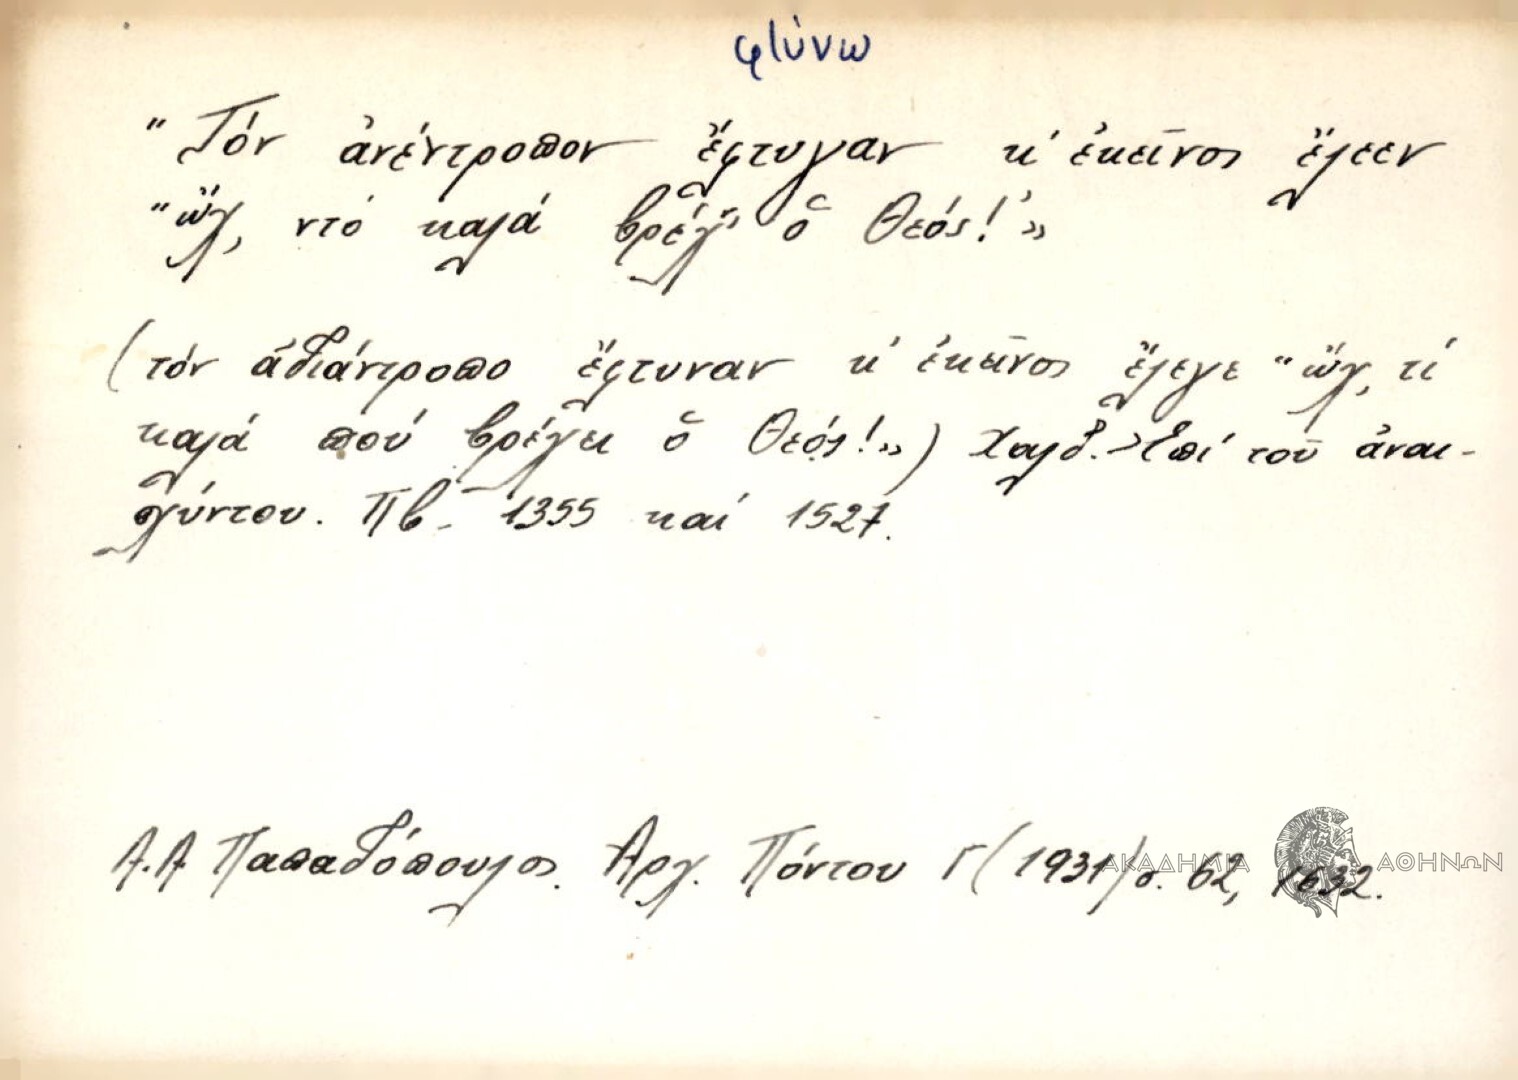 φτύνω
"Τόν ἀνέντροπον ἔφτυγαν κ' ἐκεῖνος ἔλεεν
"ὤχ, ντό καλά βρέχ' ὁ Θεός!»
(τόν ἀδιάντροπο ἔφτυναν κ' ἐκεῖνος ἔλεγε "ὤχ, τί
καλά πού βρέχει ὁ Θεός!») Χαλδ. Ἐπί τοῦ ἀναι-
σχύντου. Πβ. 1355 καί 1527.
Α.Α Παπαδόπουλος. Ἀρχ. Πόντου Γ (1931) σ. 62, 1632.
ΑΚΑΔΗΜΙΑ ΑΘΗΝΩΝ